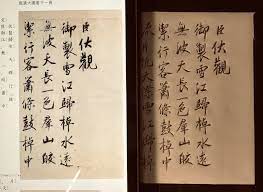 臣伏觀
御製雪江歸棹水遠
無波天長一色羣山皎
潔行客蕭條鼓棹中
臣伏觀
御製雪江歸棹水遠
無波天長一色羣山皎
潔行客蕭條鼓棹中
流片帆天際雪江